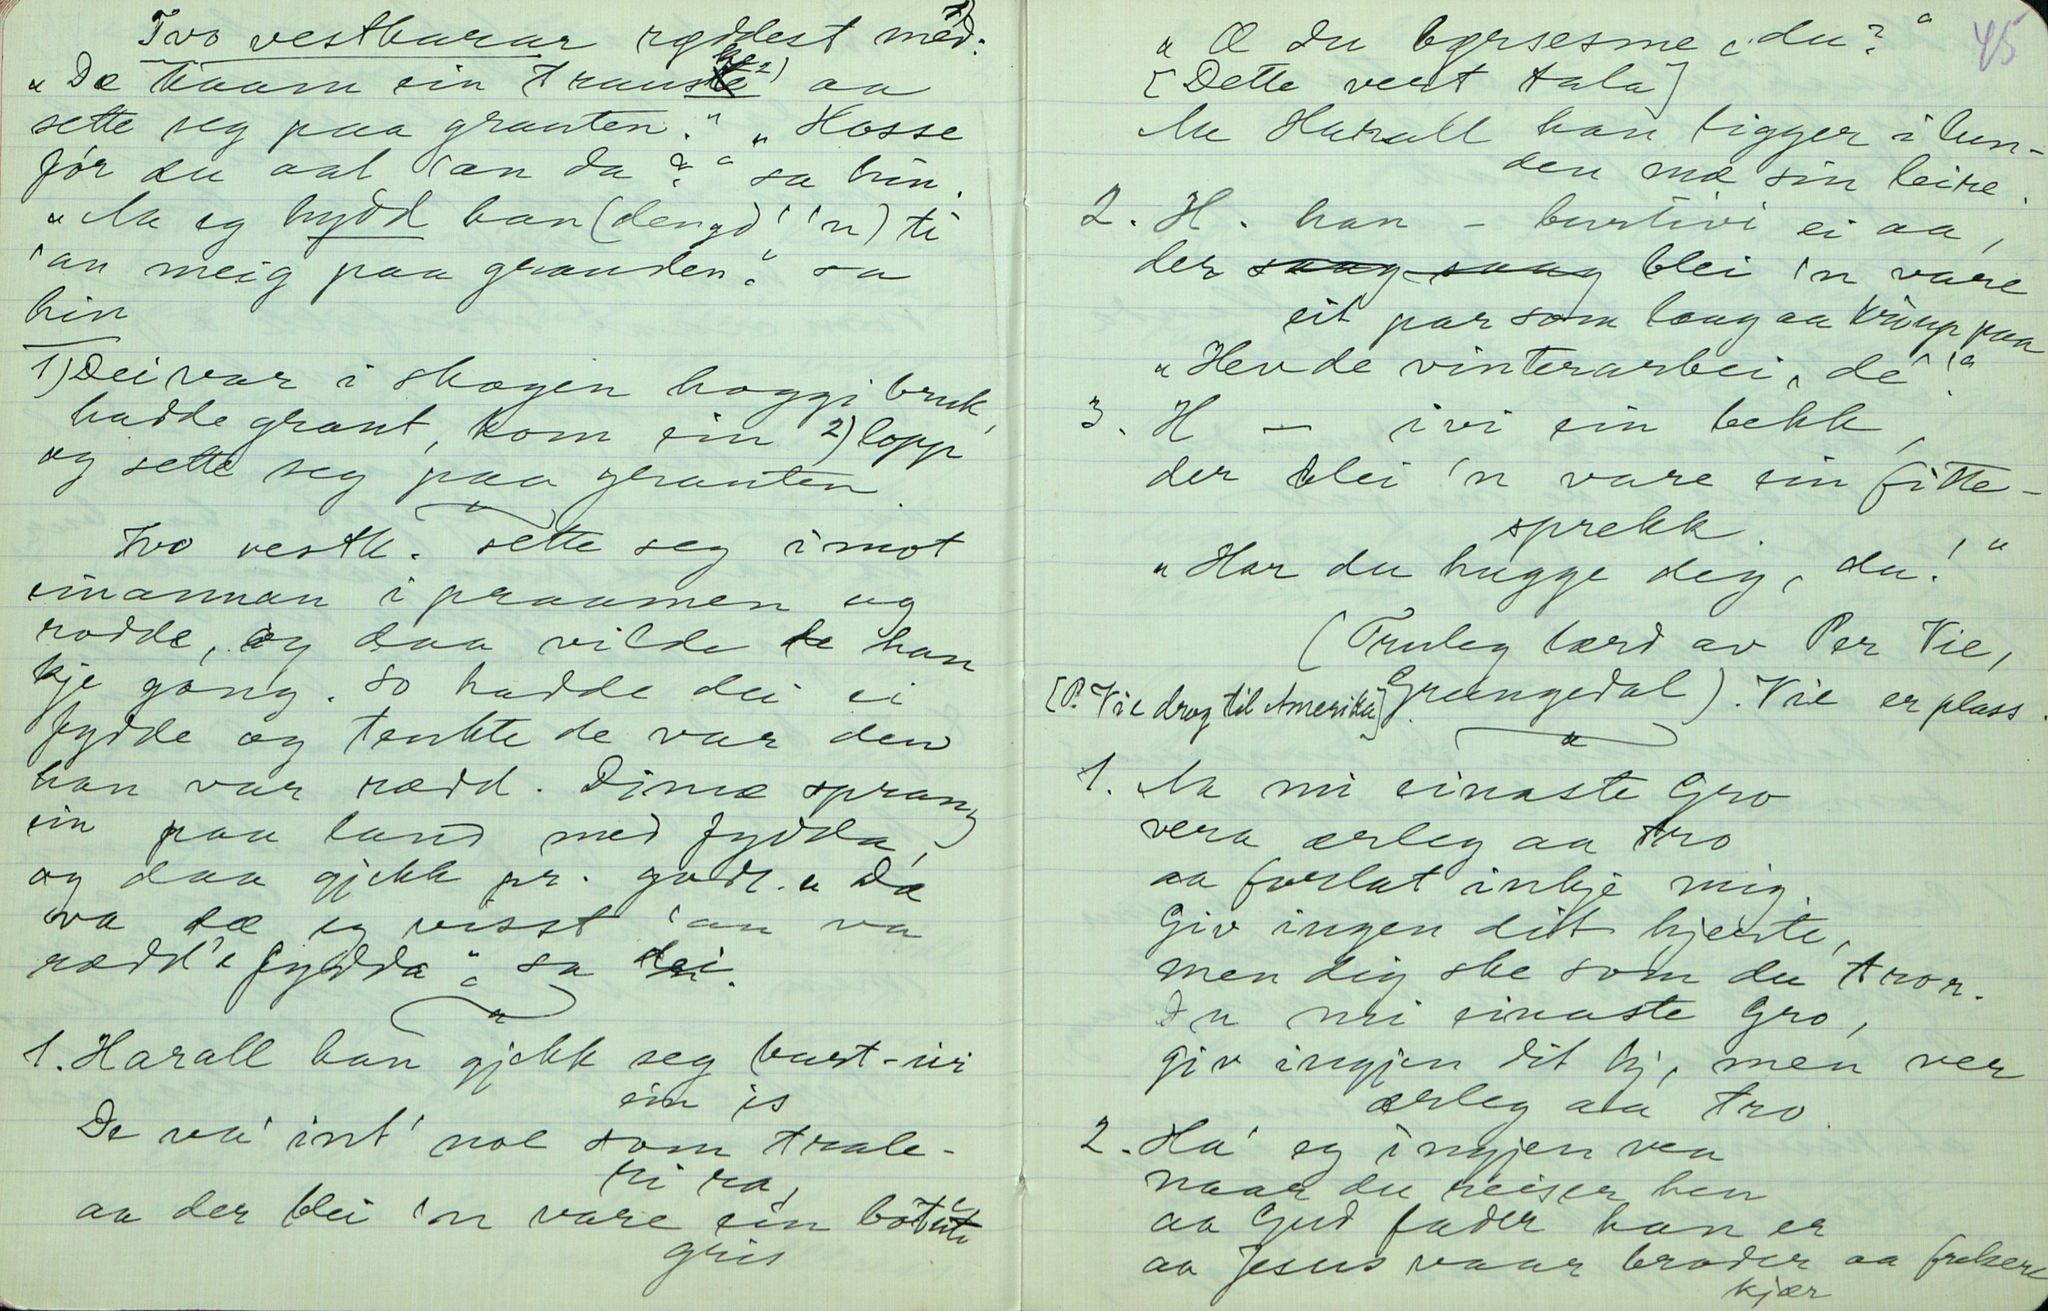 Tvo vestbarar röddest med: 1)
„Dæ kaam ein trauske 2) aa
sette seg paa granten." „Hosse
fór du aat 'an da?" sa hin.
„Aa eg hydd han (dengd' 'n) ti
'an meig paa granden." sa
hin
1) Dei var i skogen hoggi bruk,
hadde grant, kom ein 2) lopp
og sette seg paa granten.
Tvo vestb. sette seg imot
einannan i praamen og
rodde, og daa vilde han
kje gang. So hadde dei ei
fydde og tenkte de var den
han var rædd. Dimæ sprang
ein paa land med fydda,
og daa gjekk pr. godt. „Dæ
va dæ eg visst 'an va
rædd'e fydda", sa dei.
1. Harall han gjekk seg burt-ivi
ein is
De va' int' noe som trale-
ri ra,
aa der blei 'n vare ein
gris
45
„Æ du bærsesme, du?"
[Dette vert tala]
Aa Harall han ligger i lun-
den mæ sin leire.
2. H. han – burtivi ei aa,
der saag saag blei 'n vare
eit par som laag aa kraup paa
„Hev de vinterarbei, de'!"
3. H – ivi ein bekk,
der blei 'n vare ein fitte-
sprekk.
„Har du hugge deg, du!"
(Truleg lærd av Per Vie,
[P. Vie drog til Amerika] Grungedal). Vie er plass.
1. Aa mi einaste Gro
vera ærleg aa tro
aa forlat inkje mig.
Giv ingen dit hjerte,
men dig ske som du tror.
Du mi einaste Gro,
giv ingjen dit hj, men ver
ærleg aa tro.
2. Ha' eg ingjen ven
naar du reiser hen
aa Gud fader han er
aa Jesus vaar broder aa frelsere
kjær